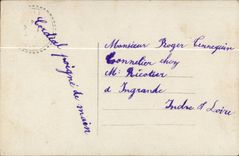 Cordial poigné de main
Monsieur Roger Tennequin
Tonnelier chez
Mr Ricotier
à Ingrande
Indre & Loire